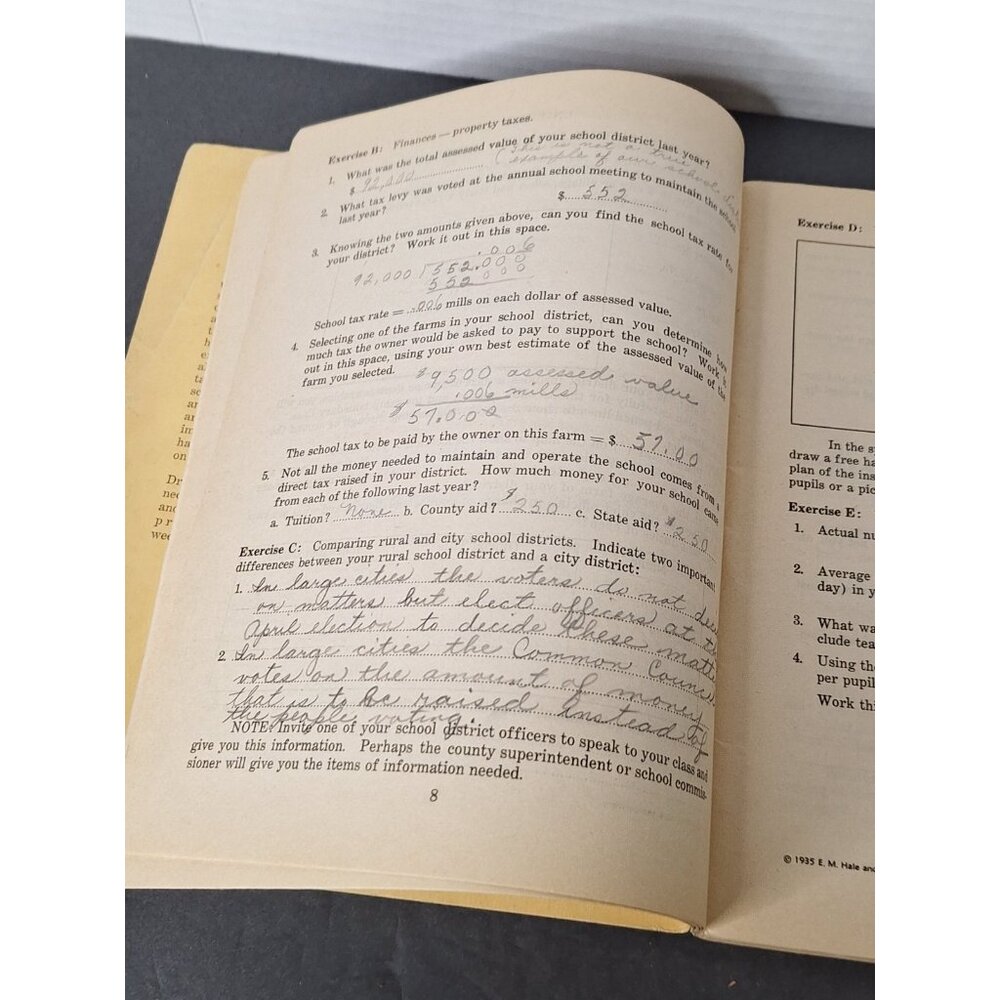 Exercise B: Finances — property taxes.
1. What was the total assessed value of your school district last year?
$ 92,000 (This is not a true
example of our school
2. What tax levy was voted at the annual school meeting to maintain the school
last year? $ 552
3. Knowing the two amounts given above, can you find the school tax rate for
your district? Work it out in this space.
.006
92,000 552.000
552 000
School tax rate = .006 mills on each dollar of assessed value.
4. Selecting one of the farms in your school district, can you determine how
much tax the owner would be asked to pay to support the school? Work it
out in this space, using your own best estimate of the assessed value of the
farm you selected.
$9,500 assessed value
.006 mills
$ 57.000
The school tax to be paid by the owner on this farm = $ 57.00
5. Not all the money needed to maintain and operate the school comes from a
direct tax raised in your district. How much money for your school came
from each of the following last year?
a. Tuition? None b. County aid? $250 c. State aid? $250
Exercise C: Comparing rural and city school districts. Indicate two important
differences between your rural school district and a city district:
1. In large cities the voters do not
on matters but elect officers at
April election to decide these
2. In large cities the Common
votes on the amount of money
that is to be raised instead of
the people voting.
NOTE: Invite one of your school district officers to speak to your class and
give you this information. Perhaps the county superintendent or school commis-
sioner will give you the items of information needed.
8
Exercise D:
In the
draw a free
plan of the
pupils or a
Exercise E:
1. Actual
2. Average
day) in
3. What
clude
4. Using
per
Work
© 1935 E. M. Hale